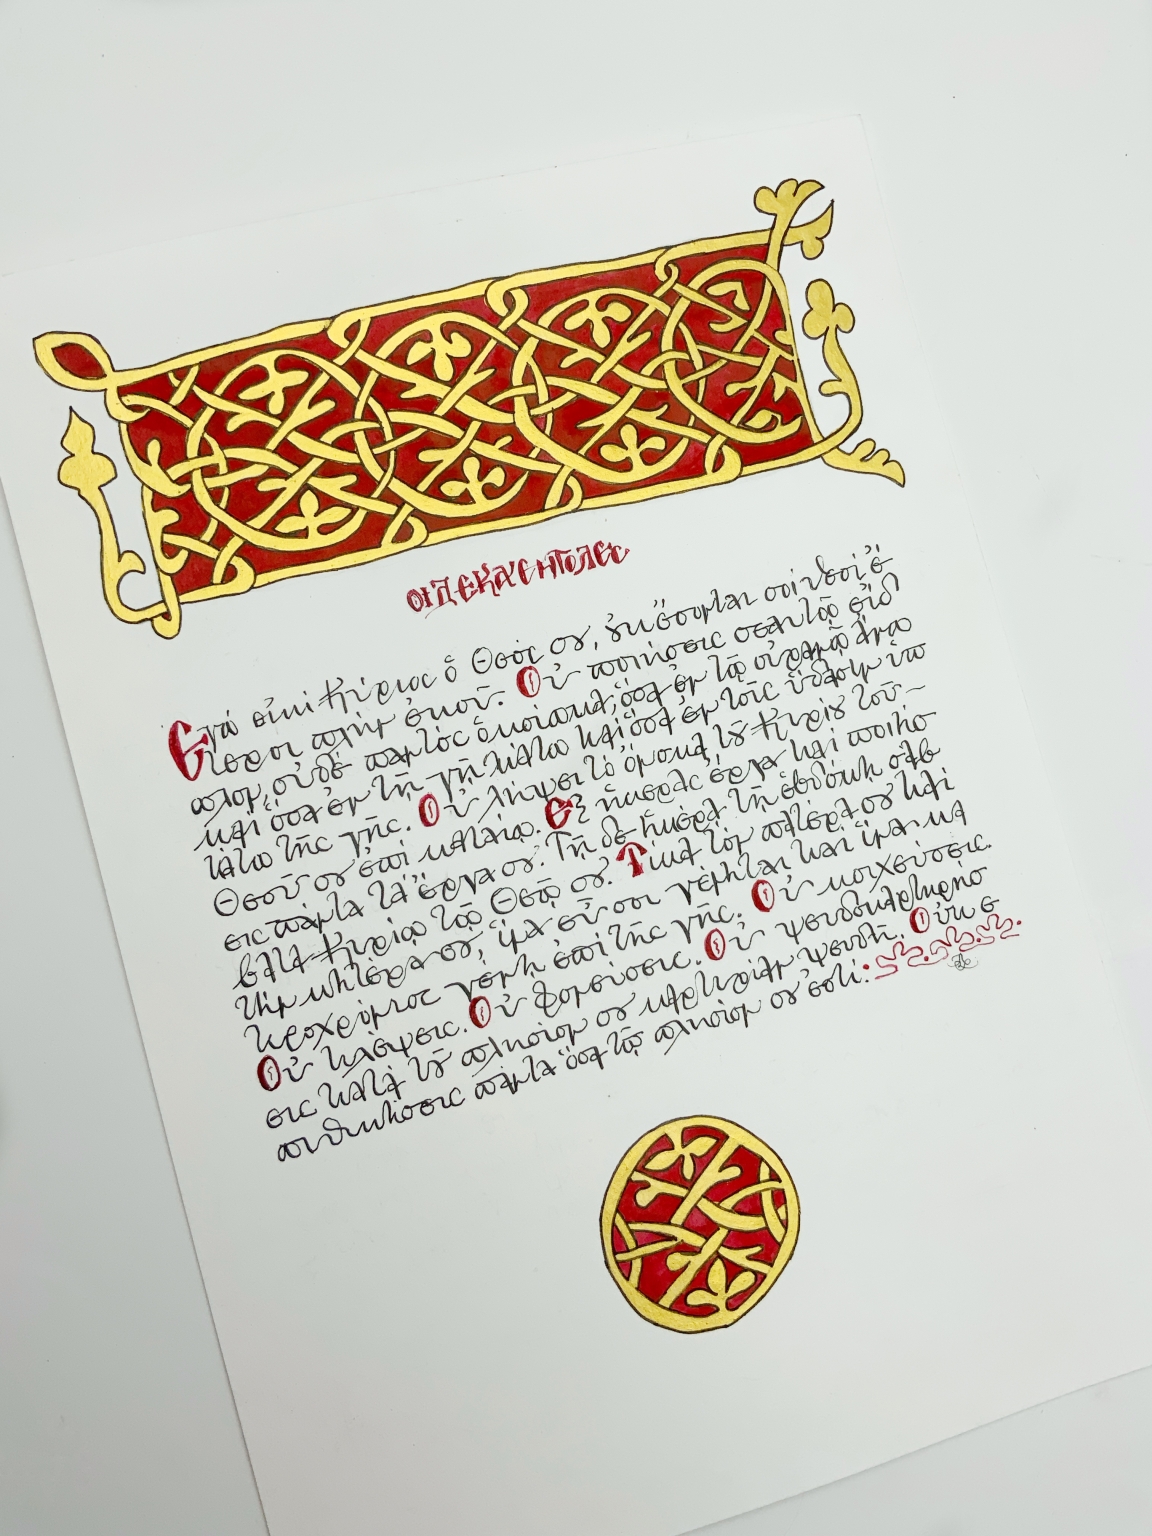 ΟΙ ΔΕΚΑ ΕΝΤΟΛΕΣ
Ἐγώ εἰμι Κύριος ὁ Θεός σου, οὐκ ἔσονται σοι θεοί ἕ
τεροι πλήν ἐμοῦ. Οὐ ποιήσεις σεαυτῷ εἴδ
ωλον, οὐδέ παντός ὁμοίωμα, ὅσα ἐν τῷ οὐρανῷ ἄνω
καί ὅσα ἐν τῇ γῇ κάτω καί ὅσα ἐν τοῖς ὕδασιν ὑπο
κάτω τῆς γῆς. Οὐ λήψει τό ὄνομα τοῦ Κυρίου τοῦ
Θεοῦ σου ἐπί ματαίῳ. Ἕξ ἡμέρας ἔργα καί ποιήσ
εις πάντα τά ἔργα σου. Τῇ δέ ἡμέρᾳ τῇ ἑβδόμῃ σάβ
βατα Κυρίῳ τῷ Θεῷ σου. Τίμα τόν πατέρα σου καί
τήν μητέρα σου, ἵνα εὖ σοι γένηται καί ἵνα μα
κροχρόνιος γένῃ ἐπί τῆς γῆς. Οὐ μοιχεύσεις.
Οὐ κλέψεις. Οὐ φονεύσεις. Οὐ ψευδομαρτυρήσ
εις κατά τοῦ πλησίον σου μαρτυρίαν ψευδῆ. Οὐκ ἐ
πιθυμήσεις πάντα ὅσα τῷ πλησίον σου ἐστί: